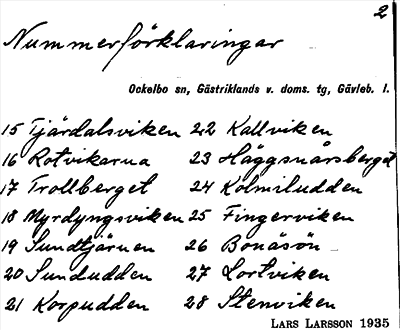 2
Nummerförklaringar
Ockelbo sn, Gästriklands v. doms. tg, Gävleb. l.
15 Tjärdalsviken 22 Kallviken
16 Rotvikarna 23 Häggsnårsberget
17 Trollberget 24 Kolmiludden
18 Myrdyngsviken 25 Fingerviken
19 Sundtjärnen 26 Bonäsön
20 Sundudden 27 Lortviken
21 Korpudden 28 Stenviken
LARS LARSSON 1935